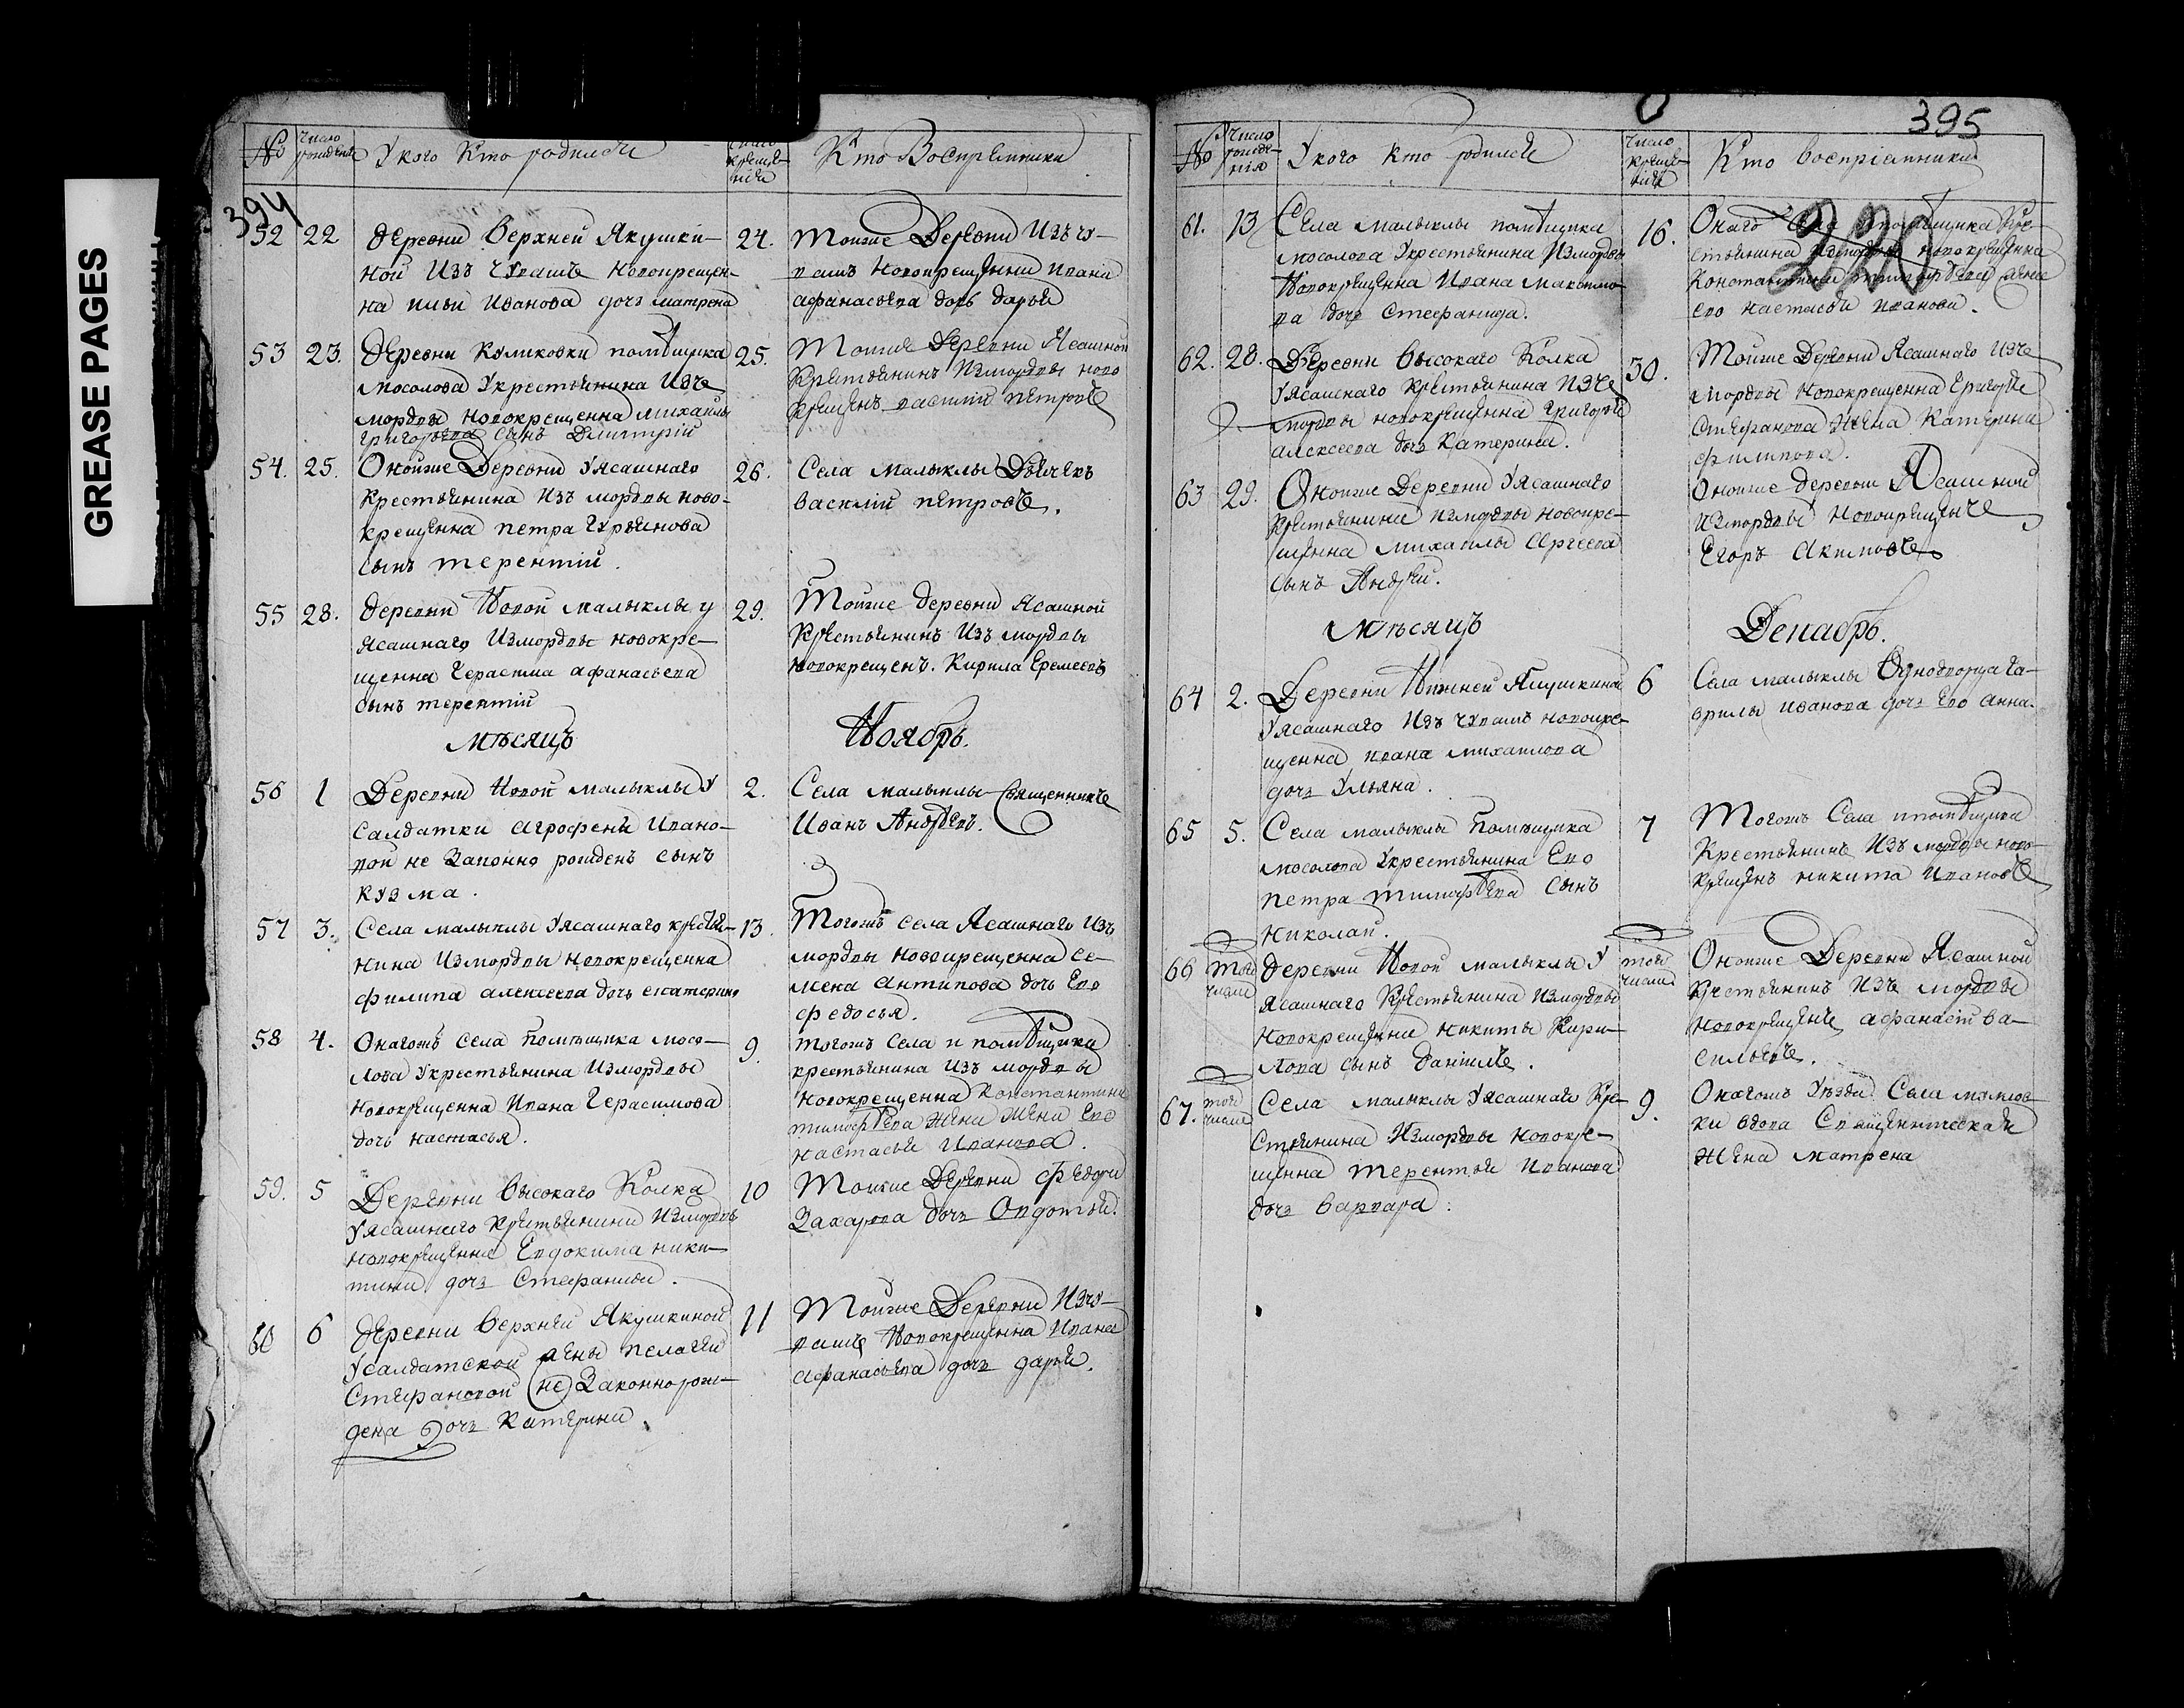 GREASE PAGES
394
№
Число рожденія
У кого Кто родился
Число крещенія
Кто Восприемники
52
22
Деревни Верхней Якушки-
ной Изъ чувашъ новокрещен-
на Ильи Иванова дочь матрена
24.
Тоиже Деревни Изъ чу-
вашъ новокрещенна Ивана
афанасьева дочь дарья
53
23.
Деревни Куликовки помѣщика
мосолова Укрестьянина Изъ
мордвы новокрещенна михайлы
григорьева сынъ Димитрій
25.
Тоиже Деревни Ясашной
Крестьянинъ Измордвы ново
крещенъ василий петровъ
54.
25.
Оноиже Деревни Уясашнаго
Крестьянина Изъ мордвы ново-
крещенна петра Гурьянова
сынъ терентій.
26.
Села малыклы Дьячекъ
василій петровъ.
55
28.
Деревни Новой малыклы у
ясашнаго Измордвы новокре-
щенна Герасима афанасьева
сынъ терентій
29.
Тоиже деревни Ясашной
Крестьянинъ Изъ мордвы
новокрещенъ. Кирила Еремеевъ
мѣсяцъ
Ноябрь.
56
1
Деревни Новой малыклы У
Салдатки агрофены Ивано-
вой не Законно рожденъ сынъ
кузма.
2.
Села малыклы Священникъ
Иванъ Андреевъ.
57
3.
Села малыклы Уясашнаго крестья-
нина Измордвы новокрещенна
филипа алексеева дочь екатерина
13.
Тогожъ села Ясашнаго Изъ
мордвы новокрещенна се-
мена антипова дочь Ево
федосья.
58
4.
Онагожъ села помѣщика мосо-
лова Укрестьянина Измордвы
новокрещенна Ивана Герасимова
дочь настасья.
9.
тогожъ села и помѣщика
крестьянина Изъ мордвы
новокрещенна Константина
тимофеева жена жена Ево
настасья Иванова.
59.
5
Деревни Высокаго Колка
Уясашнаго крестьянина Измордвы
новокрещенна Евдокима ники-
тина дочь Стефанида.
10
Тоиже Деревни Федора
Захарова дочь Овдотья.
60
6
Деревни Верхней Якушкиной
Усалдатской жены пелагеи
Стефановой не Законно рож-
дена дочь Катерина.
11
Тоиже Деревни Изчу-
вашъ Новокрещенна Ивана
афанасьева дочь дарья.
395
№
Число рожденія
У кого кто родился
Число крещенія
Кто воспріемники
61.
13
Села малыклы помѣщика
мосолова Укрестьянина Измордвы
Новокрещенна Ивана максимо-
ва дочь Стефанида.
16.
Онаго села помѣщика Кре-
стьянина Измордвы новокрещенна
Константина тимофѣева жена
ево настасья иванова.
62.
28.
Деревни высокаго Колка
Уясашнаго Крестьянина Изъ
мордвы новокрещенна Григорья
алексеева дочь Катерина.
30.
Тоиже Деревни Ясашнаго Изъ
мордвы новокрещенна Григорья
Стефанова жена Катерина
филипова.
63
29.
Оноиже Деревни Уясашнаго
Крестьянина измордвы новокре-
щенна михаилы Сергеева
сынъ Андрей.
Оноиже деревни Ясашной
измордвы Новокрещенъ
Егоръ Акимовъ
мѣсяцъ
Декабрь.
64
2.
Деревни Нижней Якушкиной
Уясашнаго Изъ чувашъ новокре-
щенна ивана михаилова
дочь Ульяна.
6
Села малыклы Однодворца Га-
врилы иванова дочь Ево анна.
65
5.
Села малыклы помѣщика
мосолова Укрестьянина Ево
петра тимофѣева сынъ
николай.
7
Тогожъ Села ипомѣщика
Крестьянинъ Изъ мордвы ново-
крещенъ никита Ивановъ
66
того числа
Деревни Новой малыклы У
Ясашнаго Крестьянина Измордвы
новокрещенна никиты Кири-
лова сынъ Даніилъ.
того числа
Оноиже Деревни Ясашной
Крестьянинъ Изъ мордвы
новокрещенъ афанасій ва-
сильевъ.
67.
того числа
Села малыклы Уясашнаго Кре-
стьянина Измордвы новокре-
щенна терентья Иванова
дочь варвара.
9.
Онагожъ Уѣзда Села
ки вдова Священническая
жена матрена